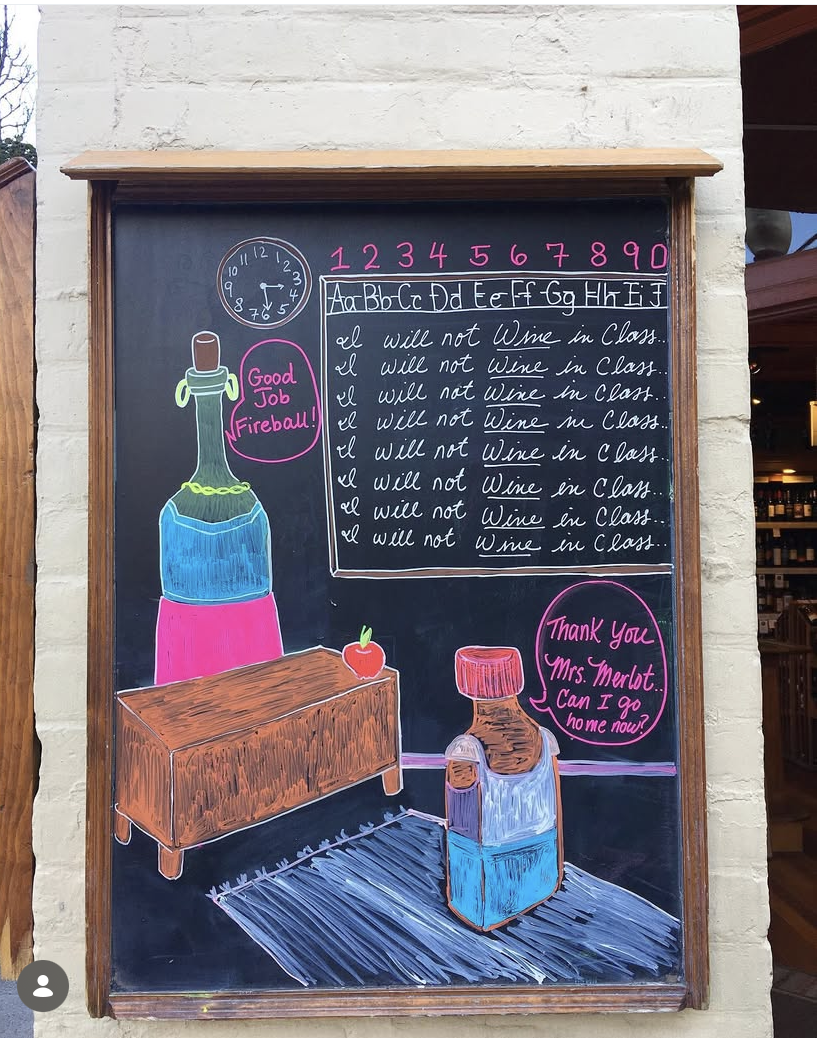 12 1 2 3 4 5 6 7 8 9 10 11
1 2 3 4 5 6 7 8 9 0
Aa Bb Cc Dd Ee Ff Gg Hh Ii J
I will not Wine in Class..
I will not Wine in Class..
I will not Wine in Class..
I will not Wine in Class..
I will not Wine in Class..
I will not Wine in Class..
I will not Wine in Class..
I will not Wine in Class..
Good
Job
Fireball!
Thank You
Mrs. Merlot..
Can I go
home now?